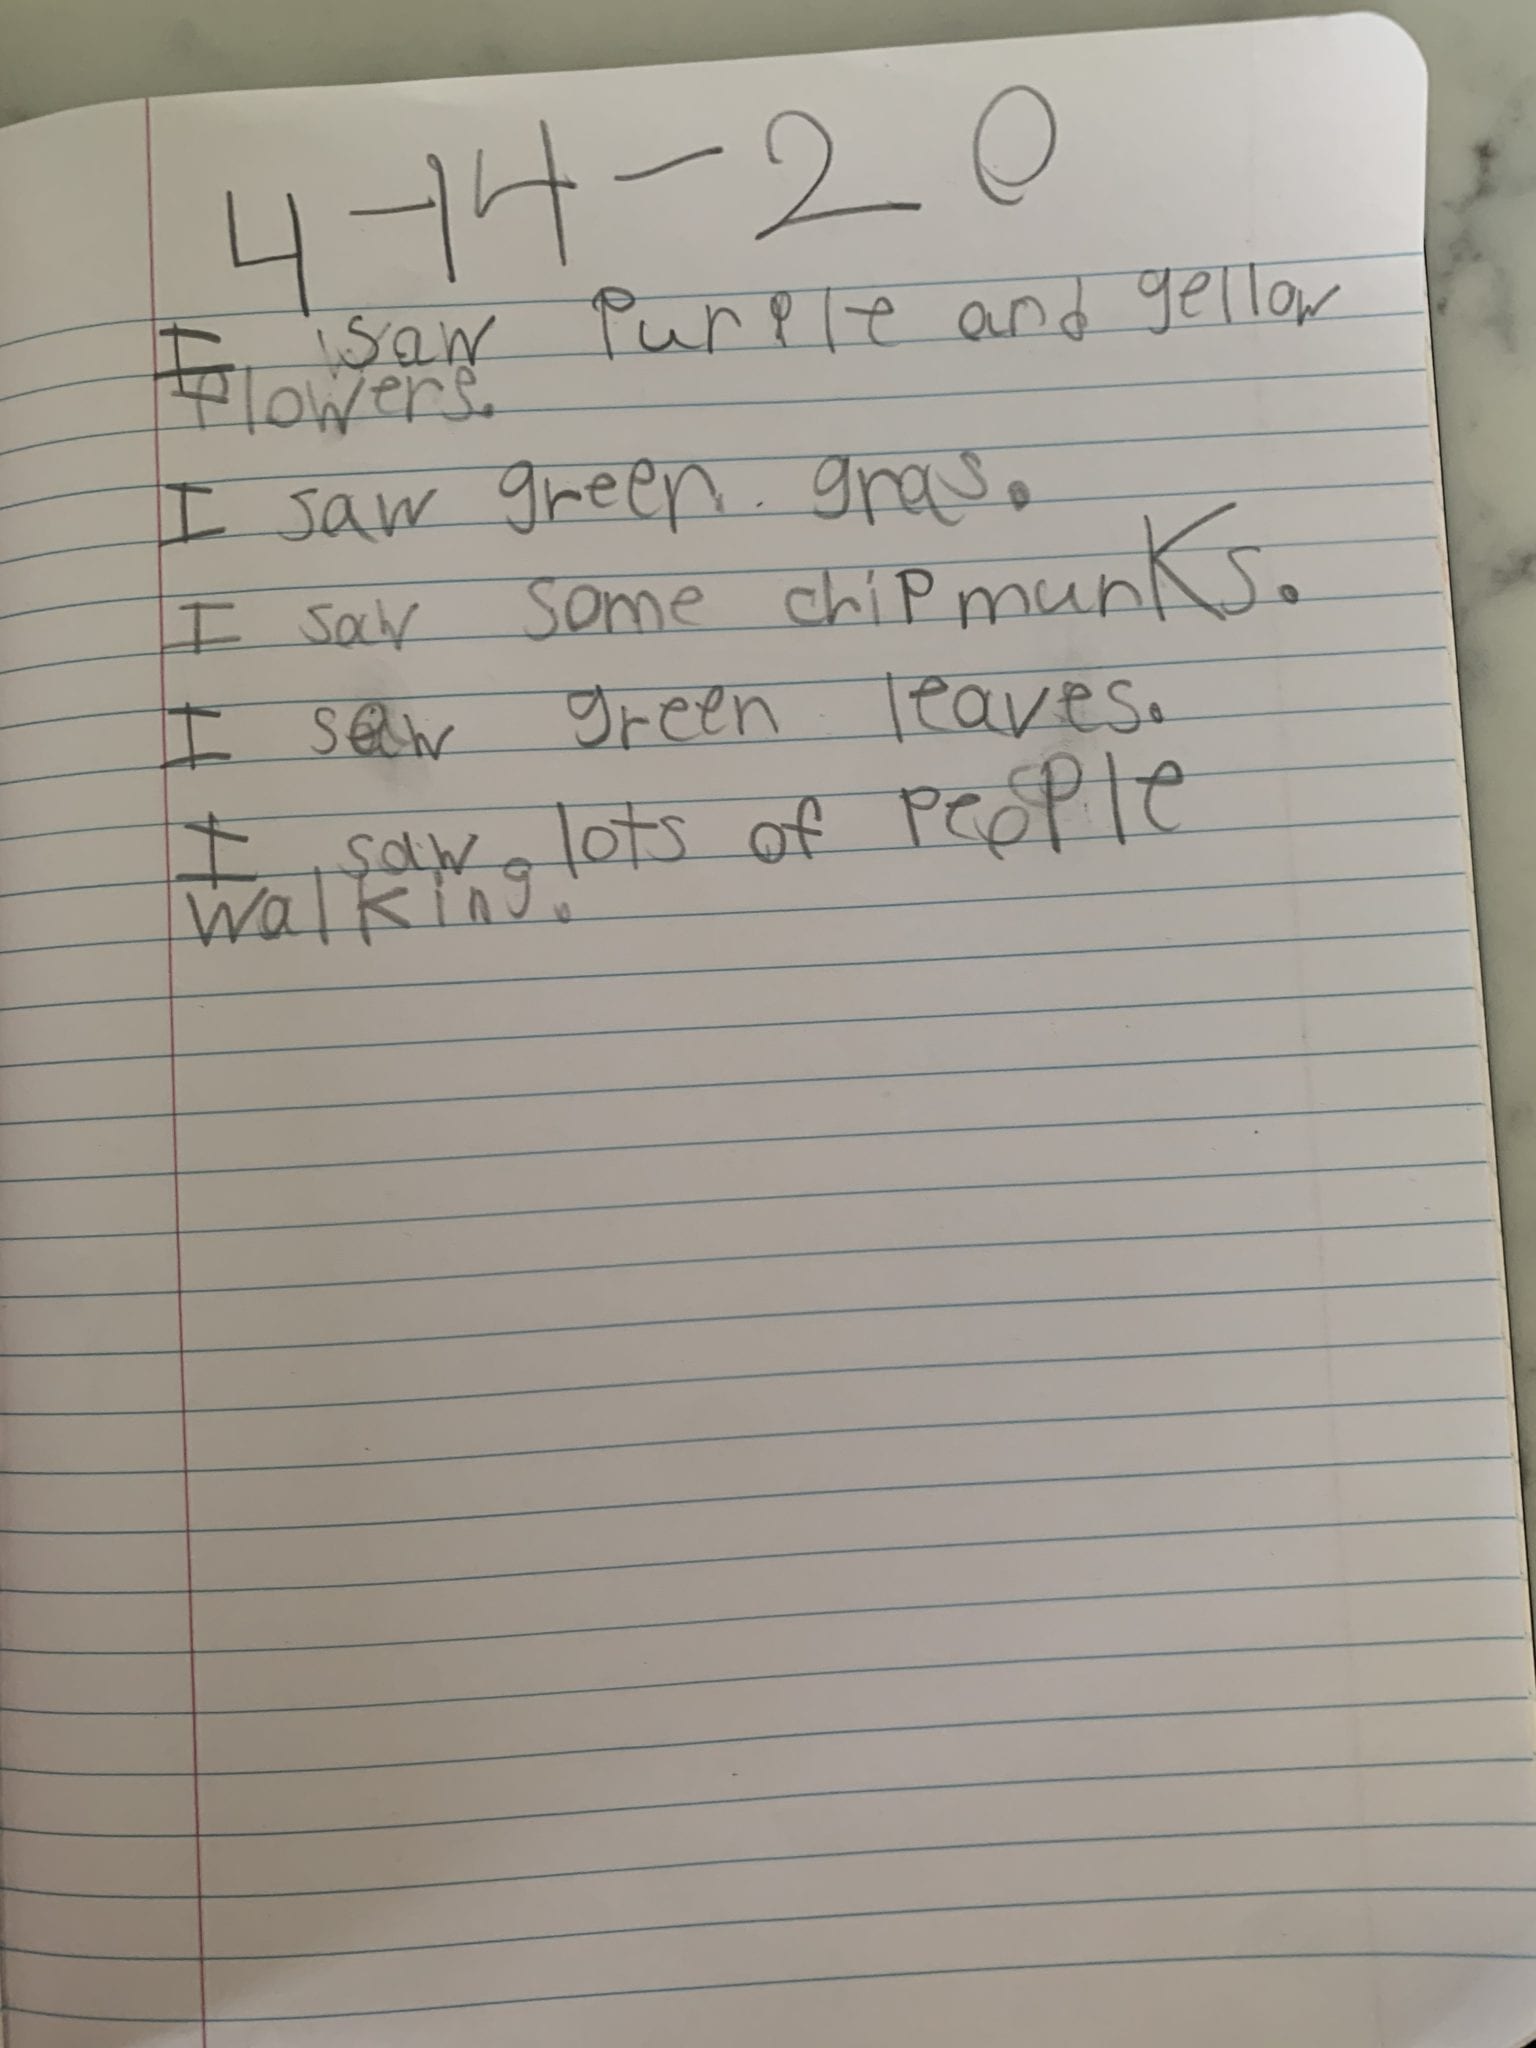 4-14-20
I saw Purple and yellow
flowers.
I saw green gras.
I saw some chipmunks.
I saw green leaves.
I saw lots of people
walking.